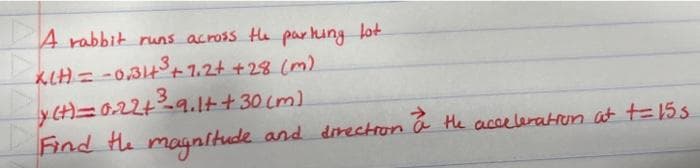 A rabbit runs across the parking lot
x(t) = -0.31t³ + 7.2t + 28 (m)
y(t) = 0.22t³ - 9.1t + 30 (m)
Find the magnitude and direction a⃗ the acceleration at t=15s